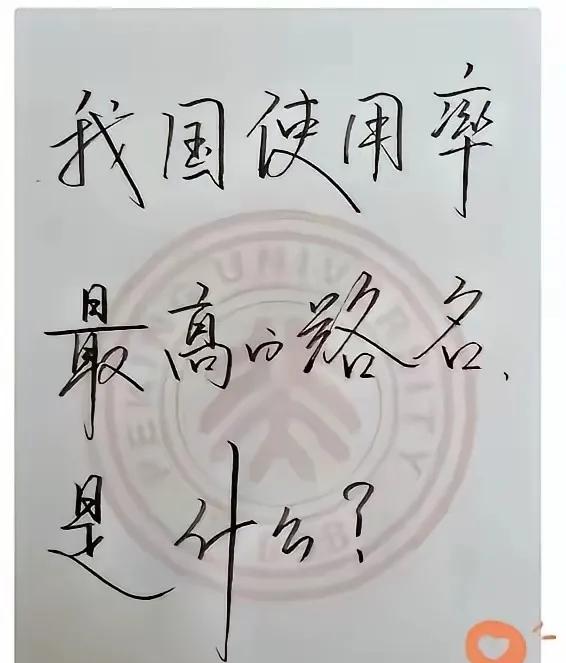 我国使用率
最高的路名,
是什么?
PEKING UNIVERSITY